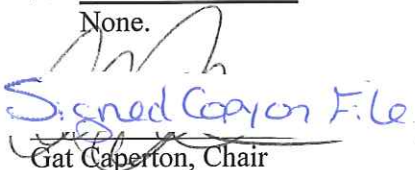 None.
Signed Copy on File
Gat Caperton, Chair